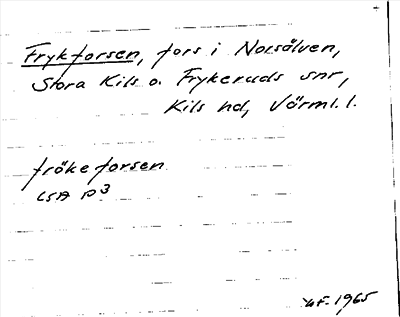 Frykforsen, fors i Norsälven,
Stora Kils o. Frykeruds snr,
Kils hd, Värml. l.
frökeforsen
LSA P3
1965